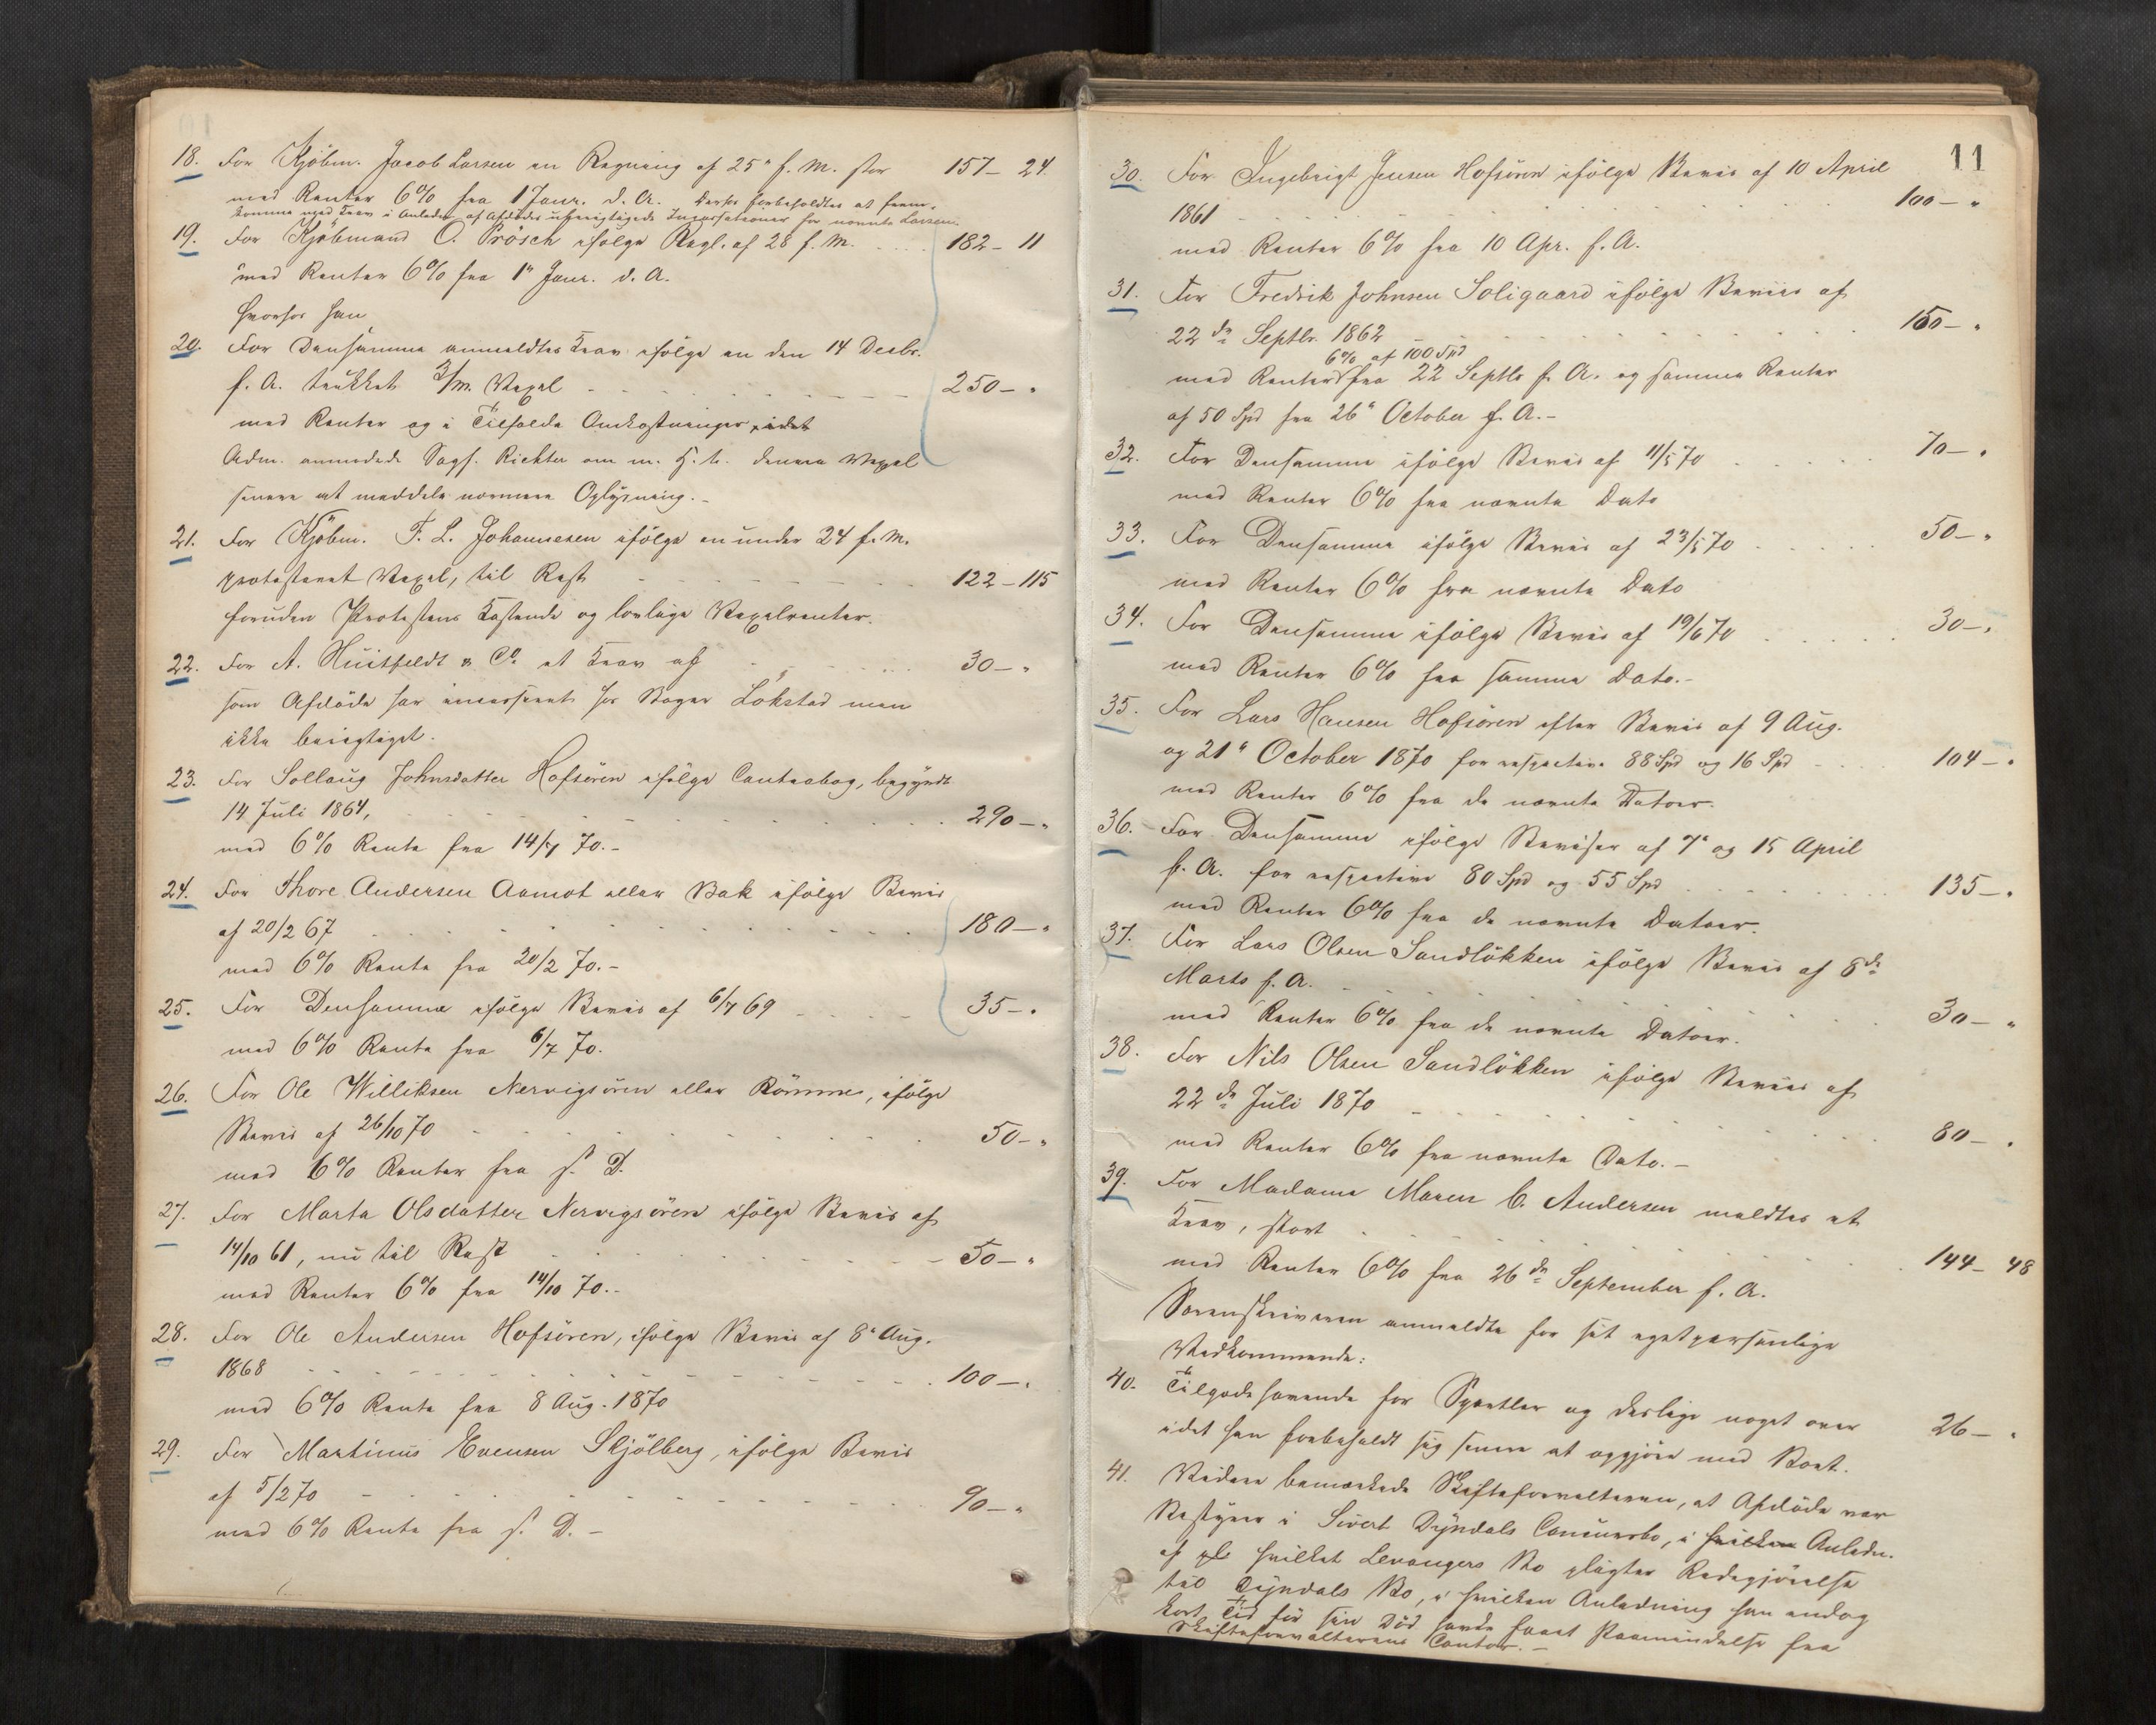 18. For Kjöbm. Jacob Larsen en Regning af 25' f. M. stor 157 – 24.
med Renter 6% fra 1 Janr. d. A. Derhos forbeholdtes at frem-
komme med Krav i Anledn. af Afdödes uberigtigede Incassationer for nævnte Larsen.
19. For Kjöbmand O. Prösch ifölge Regl. af 28 f. M. 182 – 11
med Renter 6% fra 1' Janr. d. A.
hvorhos han
20. For Densamme anmeldtes Krav ifölge en den 14 Decbr.
f. A. trukket 3/m. Vexel 250 – "
med Renter og i Tilfælde Omkostninger, idet
Adm. anmodede Sagf. Richter om m. H. t. denne Vexel
senere at meddele nærmere Oplysning. –
21. For Kjöbm. F. L. Johannesen ifölge en under 24 f. M.
protesteret Vexel, til Rest 122 – 115
foruden Protestens Kostende og lovlige Vexelrenter.
22. For A. Huitfeldt & Co. et Krav af 30 – "
som Afdöde har incasseret hos Bager Lökstad men
ikke berigtiget.
23. For Sollaug Johnsdatter Hofsören ifölge Contrabog, begyndt
14 Juli 1864, 290 – "
med 6% Rente fra 14/7 70. –
24. For Thore Andersen Aamot eller Bak ifölge Bevis
af 20/2 67 180 – "
med 6% Rente fra 20/2 70. –
25. For Densamme ifölge Bevis af 6/7 69 35 – "
med 6% Rente fra 6/7 70.
26. For Ole Williksen Nervigsören eller Römme, ifölge
Bevis af 26/10 70 50 – "
med 6% Renter fra s. D.
27. For Marta Olsdatter Nervigsören ifölge Bevis af
14/10 61, nu til Rest 50 – "
med Renter 6% fra 14/10 70. –
28. For Ole Andersen Hofsören, ifölge Bevis af 8' Aug.
1868 100 – "
med 6% Rente fra 8 Aug. 1870
29. For Martinus Evensen Skjölberg, ifölge Bevis
af 5/2 70 90 – "
med 6% Rente fra s. D. –
11
30. For Ingebrigt Jensen Hofsören ifölge Bevis af 10 April
1861 100 – "
med Renter 6% fra 10 Apr. f. A.
31. For Fredrik Johnsen Soligaard ifölge Beviis af
22de Septbr. 1862 150 – "
6% af 100 Spd
med Renter fra 22 Septbr f. A. og samme Renter
af 50 Spd fra 26' October f. A. –
32. For Densamme ifölge Bevis af 11/5 70 70 – "
med Renter 6% fra nævnte Dato
33. For Densamme ifölge Bevis af 23/5 70 50 – "
med Renter 6% fra nævnte Dato
34. For Densamme ifölge Bevis af 19/6 70 30 – "
med Renter 6% fra samme Dato. –
35. For Lars Hansen Hofsören efter Bevis af 9 Aug.
og 21' October 1870 for respective 88 Spd og 16 Spd 104 – "
med Renter 6% fra de nævnte Datoer.
36. For Densamme ifölge Beviser af 7' og 15 April
f. A. for respective 80 Spd og 55 Spd 135 – "
med Renter 6% fra de nævnte Datoer.
37. For Lars Olsen Sandlökken ifölge Bevis af 8de
Marts f. A. 30 – "
med Renter 6% fra de nævnte Datoer.
38. For Nils Olsen Sandlökken ifölge Beviis af
22de Juli 1870 80 – "
med Renter 6% fra nævnte Dato. –
39. For Madame Maren C. Andersen meldtes et
Krav, stort 144 – 48
med Renter 6% fra 26de September f. A.
Sorenskriveren anmeldte for sit eget personlige
Vedkommende:
40. Tilgodehavende for Sportler og deslige noget over 26 – "
idet han forbeholdt sig senere at opgjöre med Boet.
41. Videre bemærkede Skifteforvalteren, at Afdöde var
Bestyrer i Sivert Dyndals Concursbo, i hvilken Anledn.
af hvilket Levangers Bo pligter Redegjörelse
til Dyndals Bo, i hvilken Anledning han endog
kort Tid för sin Död havde faaet Paamindelse fra
Skifteforvalterens Contor. –